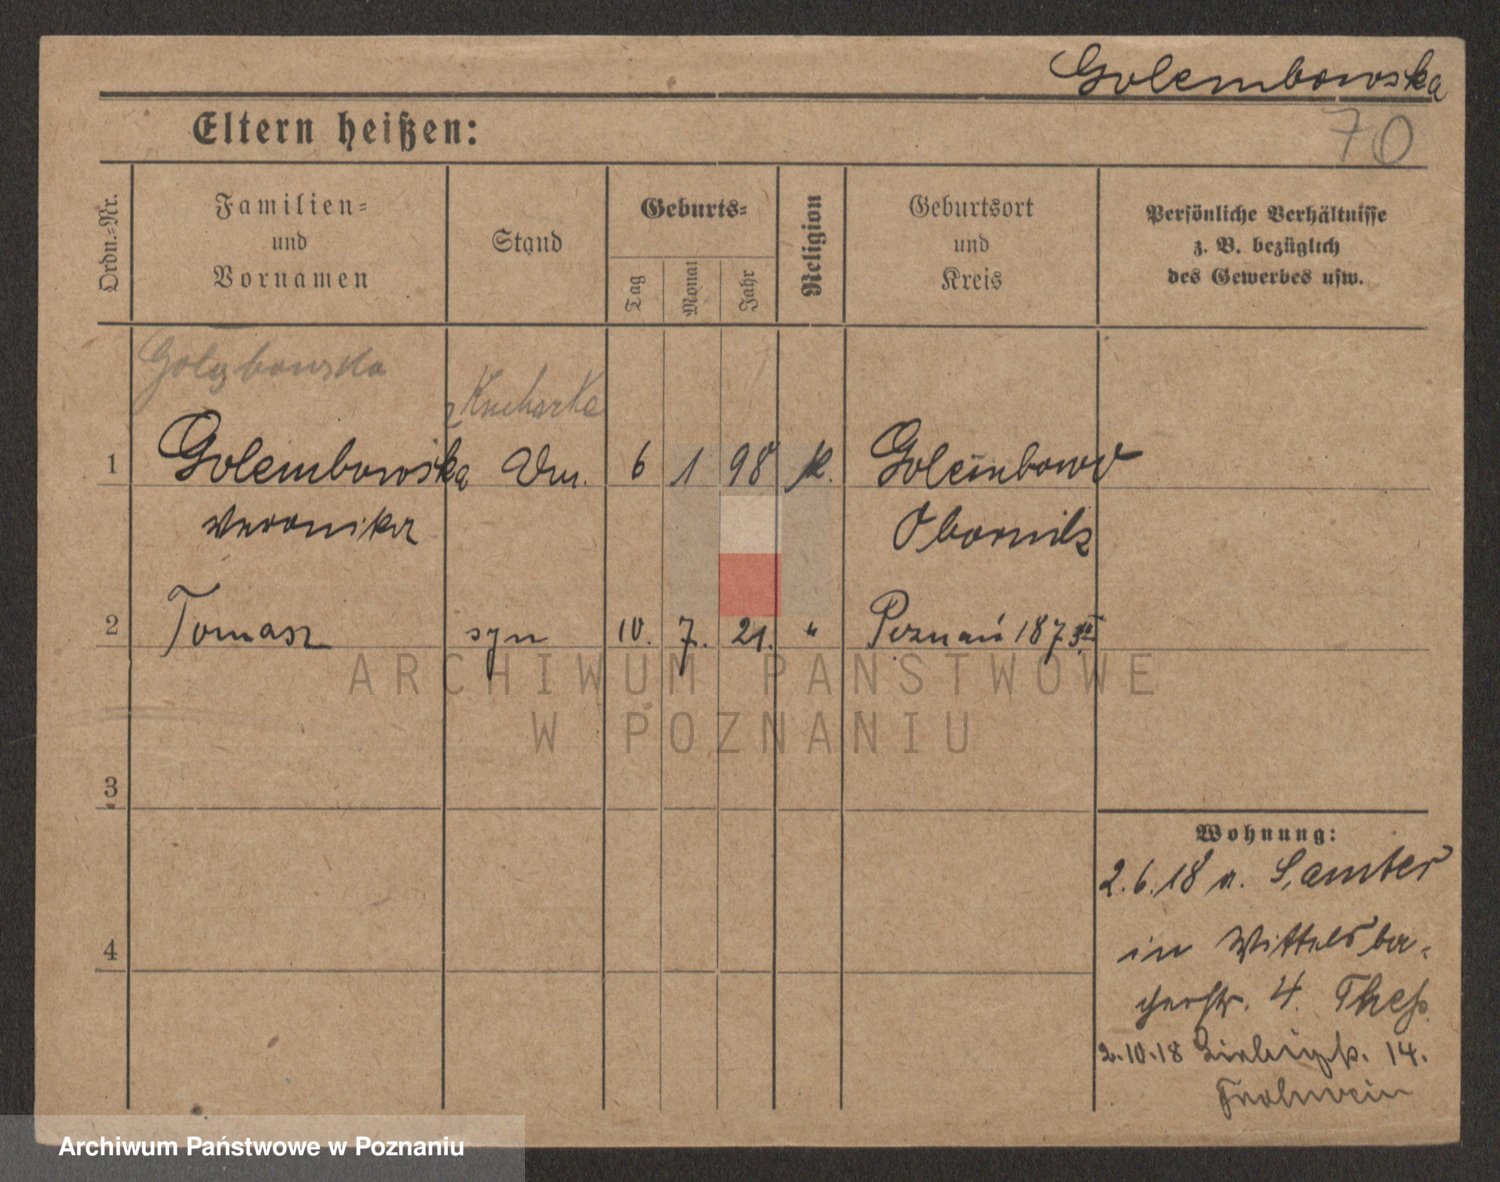 Golembowska
70
Eltern heißen:
Ordn.-Nr.
Familien-
und
Vornamen
Stand
Geburts-
Tag
Monat
Jahr
Religion
Geburtsort
und
Kreis
Persönliche Verhältnisse
z. B. bezüglich
des Gewerbes usw.
Gołębowska
Kucharka
1 Golembowska 6 1 98 k. Golembowo
Veronika Obornik
2 Tomasz syn 10. 7. 21. " Poznań
3
4
Wohnung:
2.6.18 a. Samter
in Wittelsba-
cherstr. 4.
2.10.18 14.
Frohwein
ARCHIWUM PAŃSTWOWE
W POZNANIU
Archiwum Państwowe w Poznaniu